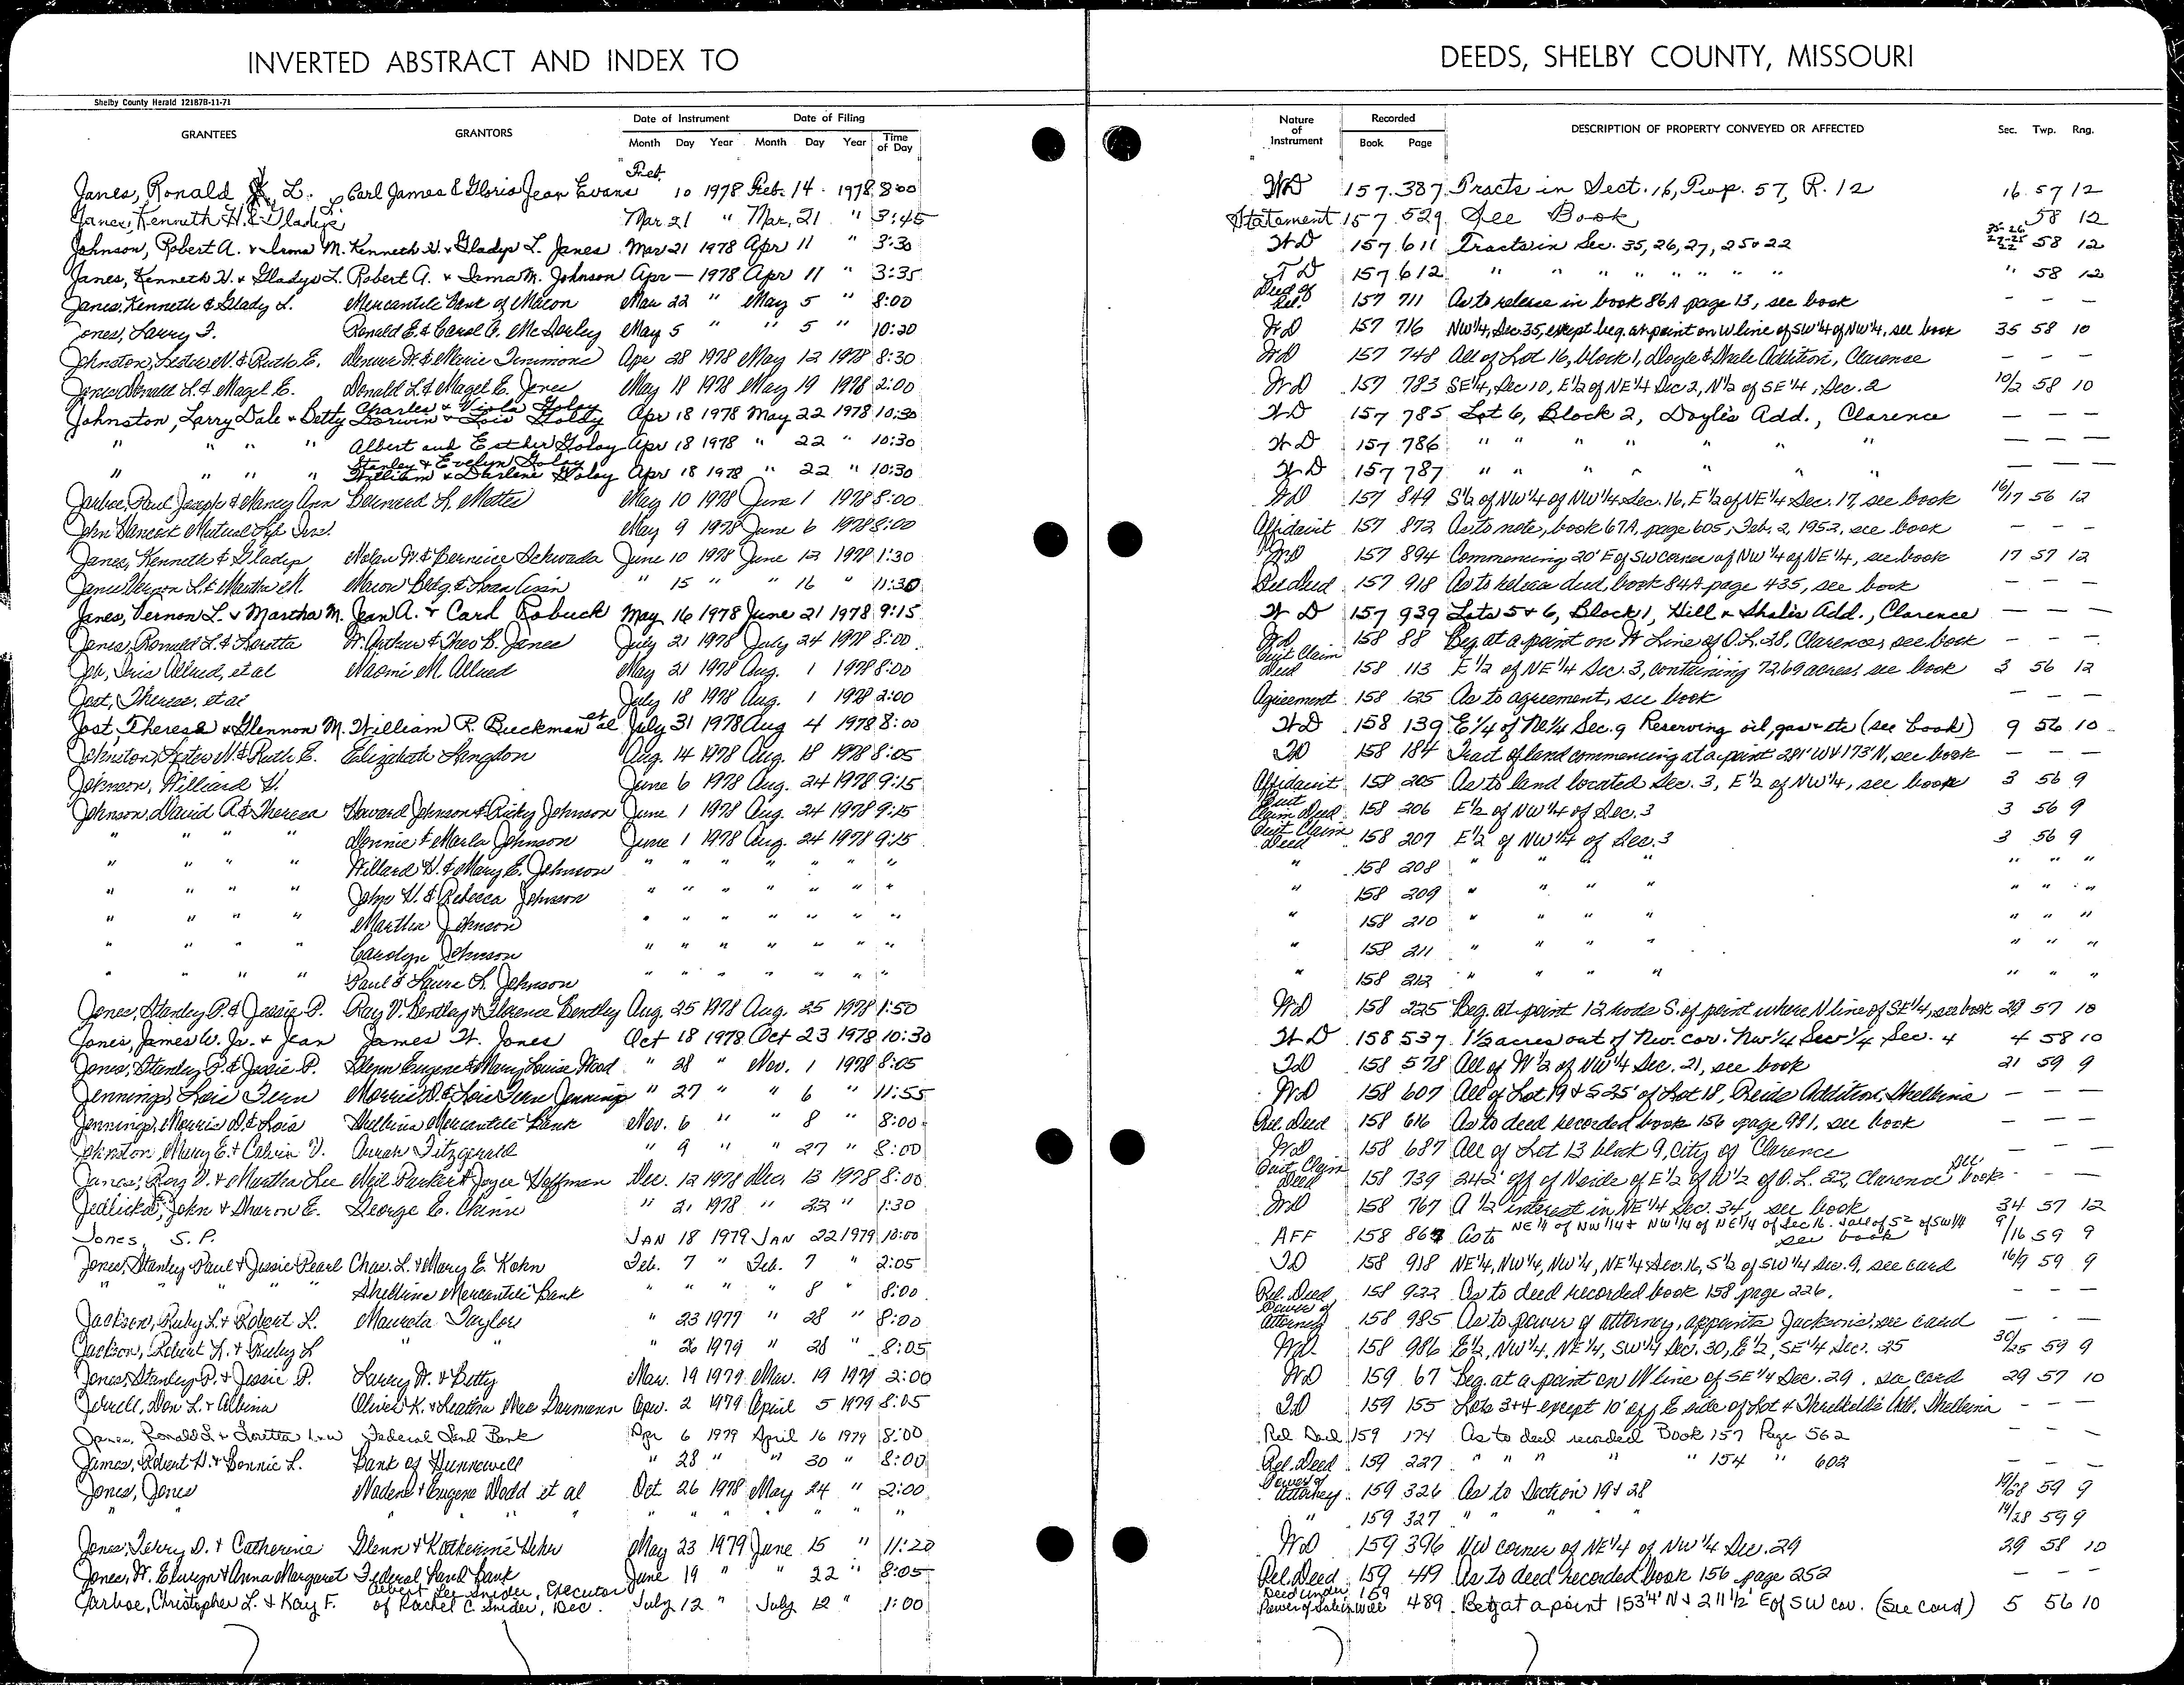 INVERTED ABSTRACT AND INDEX TO DEEDS, SHELBY COUNTY, MISSOURI
Shelby County Herald 12187B-11-71
GRANTEES GRANTORS Date of Instrument Date of Filing Nature of Instrument Recorded DESCRIPTION OF PROPERTY CONVEYED OR AFFECTED Sec. Twp. Rng.
Month Day Year Month Day Year Time of Day Book Page
Janes, Ronald L. Carl James & Gloria Jean Evans Feb. 10 1978 Feb. 14 1978 8:00 WD 157 387 Tracts in Sect. 16, Twp. 57, R. 12 16 57 12
Janes, Kenneth H. & Gladys Mar 21 " Mar. 21 " 3:45 Statement 157 529 See Book 58 12
Johnson, Robert A. & Irma M. Kenneth H. & Gladys L. Janes Mar 21 1978 Apr 11 " 3:30 WD 157 611 Tracts in Sec. 35, 26, 27, 25 & 22 35-26 27-25 22 58 12
Janes, Kenneth H. & Gladys L. Robert A. & Irma M. Johnson Apr — 1978 Apr 11 " 3:35 TD 157 612 " " " " " " " " 58 12
Janes, Kenneth & Glady L. Mercantile Bank of Macon Mar 22 " May 5 " 8:00 Deed of Rel. 157 711 As to release in book 86A page 13, see book – – –
Jones, Larry F. Ronald E. & Carol A. McSorley May 5 " " 5 " 10:20 WD 157 716 NW¼, Sec 35, except beg. at point on W line of SW¼ of NW¼, see book 35 58 10
Johnston, Lester N. & Ruth E. Denver W. & Marie Timmons Apr 28 1978 May 12 1978 8:30 WD 157 748 All of Lot 16, block 1, Doyle & Shale Addition, Clarence – – –
Jones, Donald L. & Magel E. Donald L. & Magel E. Jones May 18 1978 May 19 1978 2:00 WD 157 783 SE¼, Sec 10, E½ of NE¼ Sec 2, N½ of SE¼, Sec. 2 10/2 58 10
Johnston, Larry Dale & Betty Charles & Viola Golay Dorwin & Lois Golay Apr 18 1978 May 22 1978 10:30 WD 157 785 Lot 6, Block 2, Doyle's Add., Clarence — — —
" " " " Albert and Esther Golay Apr 18 1978 " 22 " 10:30 WD 157 786 " " " " " " — — —
" " " " Stanley & Evelyn Golay William & Darlene Golay Apr 18 1978 " 22 " 10:30 WD 157 787 " " " " " " — — —
Jarboe, Paul Joseph & Nancy Ann Bernard L. Mattes May 10 1978 June 1 1978 8:00 WD 157 849 S½ of NW¼ of NW¼ Sec. 16, E½ of NE¼ Sec. 17, see book 16/17 56 12
John Hancock Mutual Life Ins. May 9 1978 June 6 1978 8:00 Affidavit 157 872 As to note, book 67A, page 605, Feb. 2, 1953, see book – – –
Janes, Kenneth & Gladys Nolan W. & Bernice Schwada June 10 1978 June 12 1978 1:30 WD 157 894 Commencing 20' E of SW corner of NW¼ of NE¼, see book 17 57 12
Janes Vernon L. & Martha M. Macon Bldg. & Loan Assn " 15 " " 16 " 11:30 Rel Deed 157 918 As to release deed, book 84A page 435, see book – – –
Janes, Vernon L. & Martha M. Jean A. & Carl Robuck May 16 1978 June 21 1978 9:15 WD 157 939 Lots 5 & 6, Block 1, Hill & Shale's Add., Clarence — — —
Janes, Ronald L. & Loretta W. Arthur & Theo B. Janes July 21 1978 July 24 1978 8:00 WD 158 88 Beg. at a point on W Line of O.L. 28, Clarence, see book – – –
Job, Iris Allred, et al Naomi M. Allred May 31 1978 Aug. 1 1978 8:00 Quit Claim Deed 158 113 E½ of NE¼ Sec. 3, containing 72.69 acres, see book 3 56 12
Jost, Theresa, et al July 18 1978 Aug. 1 1978 2:00 Agreement 158 125 As to agreement, see book – – –
Jost, Theresa & Glennon M. William R. Buckman et al July 31 1978 Aug 4 1978 8:00 WD 158 139 E¼ of NE¼ Sec. 9 Reserving oil, gas & etc (see book) 9 56 10
Johnston, Lester N. & Ruth E. Elizabeth Langdon Aug. 14 1978 Aug. 18 1978 8:05 TD 158 184 Tract of land commencing at a point 281' W & 173' N, see book – – –
Johnson, Williard H. June 6 1978 Aug. 24 1978 9:15 Affidavit 158 205 As to land located Sec. 3, E½ of NW¼, see book 3 56 9
Johnson, David A. & Theresa Howard Johnson & Ricky Johnson June 1 1978 Aug. 24 1978 9:15 Quit Claim Deed 158 206 E½ of NW¼ of Sec. 3 3 56 9
" " " " Donnie & Marla Johnson June 1 1978 Aug. 24 1978 9:15 Quit Claim Deed 158 207 E½ of NW¼ of Sec. 3 3 56 9
" " " " Willard H. & Mary E. Johnson " " " " " " " " 158 208 " " " " " " "
" " " " John H. & Rebecca Johnson " " " " " " " " 158 209 " " " " " " "
" " " " Martha Johnson " " " " " " " " 158 210 " " " " " " "
" " " " Carolyn Johnson " " " " " " " " 158 211 " " " " " " "
" " " " Paul & Laura L. Johnson " " " " " " " " 158 212 " " " " " " "
Jones, Stanley P. & Jessie P. Ray V. Bentley & Florence Bentley Aug. 25 1978 Aug. 25 1978 1:50 WD 158 225 Beg. at point 12 rods S. of point where N line of SE¼, see book 29 57 10
Jones, James W. Jr. & Jean James W. Jones Oct 18 1978 Oct 23 1978 10:30 WD 158 537 1½ acres out of Nw. cor. Nw¼ Sw¼ Sec. 4 4 58 10
Jones, Stanley P. & Jessie P. Glenn Eugene & Mary Louise Wood " 28 " Nov. 1 1978 8:05 TD 158 578 All of W½ of NW¼ Sec. 21, see book 21 59 9
Jennings, Lois Fern Morris D. & Lois Fern Jennings " 27 " " 6 " 11:55 WD 158 607 All of Lot 19 & S 25' of Lot 18, Reids Addition, Shelbina – – –
Jennings, Morris D. & Lois Shelbina Mercantile Bank Nov. 6 " " 8 " 8:00 Rel. Deed 158 616 As to deed recorded book 156 page 991, see book – – –
Johnston, Mary E. & Calvin V. Fitzgerald " 9 " " 27 " 8:00 WD 158 687 All of Lot 13 block 9, City of Clarence – – –
Janes, Roy V. & Martha Lee Neil Parker & Joyce Hoffman Dec. 12 1978 Dec. 13 1978 8:00 Quit Claim Deed 158 739 242' off of N side of E½ of W½ of O.L. 22, Clarence see book – – –
Jedlicka, John & Sharon E. George E. Chinn " 21 1978 " 22 " 1:30 WD 158 767 A ½ interest in NE¼ Sec. 34, see book 34 57 12
Jones, S. P. JAN 18 1979 JAN 22 1979 10:00 AFF 158 864 As to NE¼ of NW¼ & NW¼ of NE¼ of Sec 16. & all of S½ of SW¼ see book 9/16 59 9
Jones, Stanley Paul & Jessie Pearl Chas. L. & Mary E. Kohn Feb. 7 " Feb. 7 " 2:05 TD 158 918 NE¼, NW¼, NW¼, NE¼ Sec. 16, S½ of SW¼ Sec. 9, see card 16/9 59 9
" " " " Shelbina Mercantile Bank " " " " 8 " 8:00 Rel. Deed 158 922 As to deed recorded book 158 page 226. – – –
Jackson, Ruby L. & Robert L. Maureta Taylor " 23 1979 " 28 " 8:00 Power of Attorney 158 985 As to power of attorney, appoints Jacksons, see card – – –
Jackson, Robert L. & Ruby L " " " 26 1979 " 28 " 8:05 WD 158 986 E½, NW¼, NE¼, SW¼ Sec. 30, E½, SE¼ Sec. 25 30/25 59 9
Jones, Stanley P. & Jessie P. Larry W. & Betty Mar. 19 1979 Mar. 19 1979 2:00 WD 159 67 Beg. at a point on W line of SE¼ Sec. 29. see card 29 57 10
Jerrell, Don L. & Albina Oliver K. & Leatha Mae Darmann Apr. 2 1979 April 5 1979 8:05 TD 159 155 Lots 3 & 4 except 10' off E side of Lot 4 Threlkeld's Add. Shelbina – – –
Janes, Ronald L. & Loretta Federal Land Bank Apr 6 1979 April 16 1979 8:00 Rel Deed 159 174 As to deed recorded Book 157 Page 562 – – –
James, Robert D. & Bonnie L. Bank of Hunnewell " 28 " " 30 " 8:00 Rel. Deed 159 227 " " " " " 154 " 602 – – –
Jones, Jones Nadene & Eugene Dodd et al Oct 26 1978 May 24 " 2:00 Power of Attorney 159 326 As to Section 19 & 28 19/28 59 9
" " " " " " " " " " " 159 327 " " " " 19/28 59 9
Jones, Terry D. & Catherine Glenn & Katherine May 23 1979 June 15 " 11:20 WD 159 396 NW corner of NE¼ of NW¼ Sec. 29 29 58 10
Jones, W. Elwyn & Anna Margaret Federal Land Bank June 19 " " 22 " 8:05 Rel. Deed 159 419 As to deed recorded book 156 page 252 – – –
Jarboe, Christopher L. & Kay F. Albert Lee Snider, Executor of Rachel C. Snider, Dec. July 12 " July 12 " 1:00 Deed under Power of Sale in Will 159 489 Beg at a point 153'4' N & 211½' E of SW cor. (See card) 5 56 10